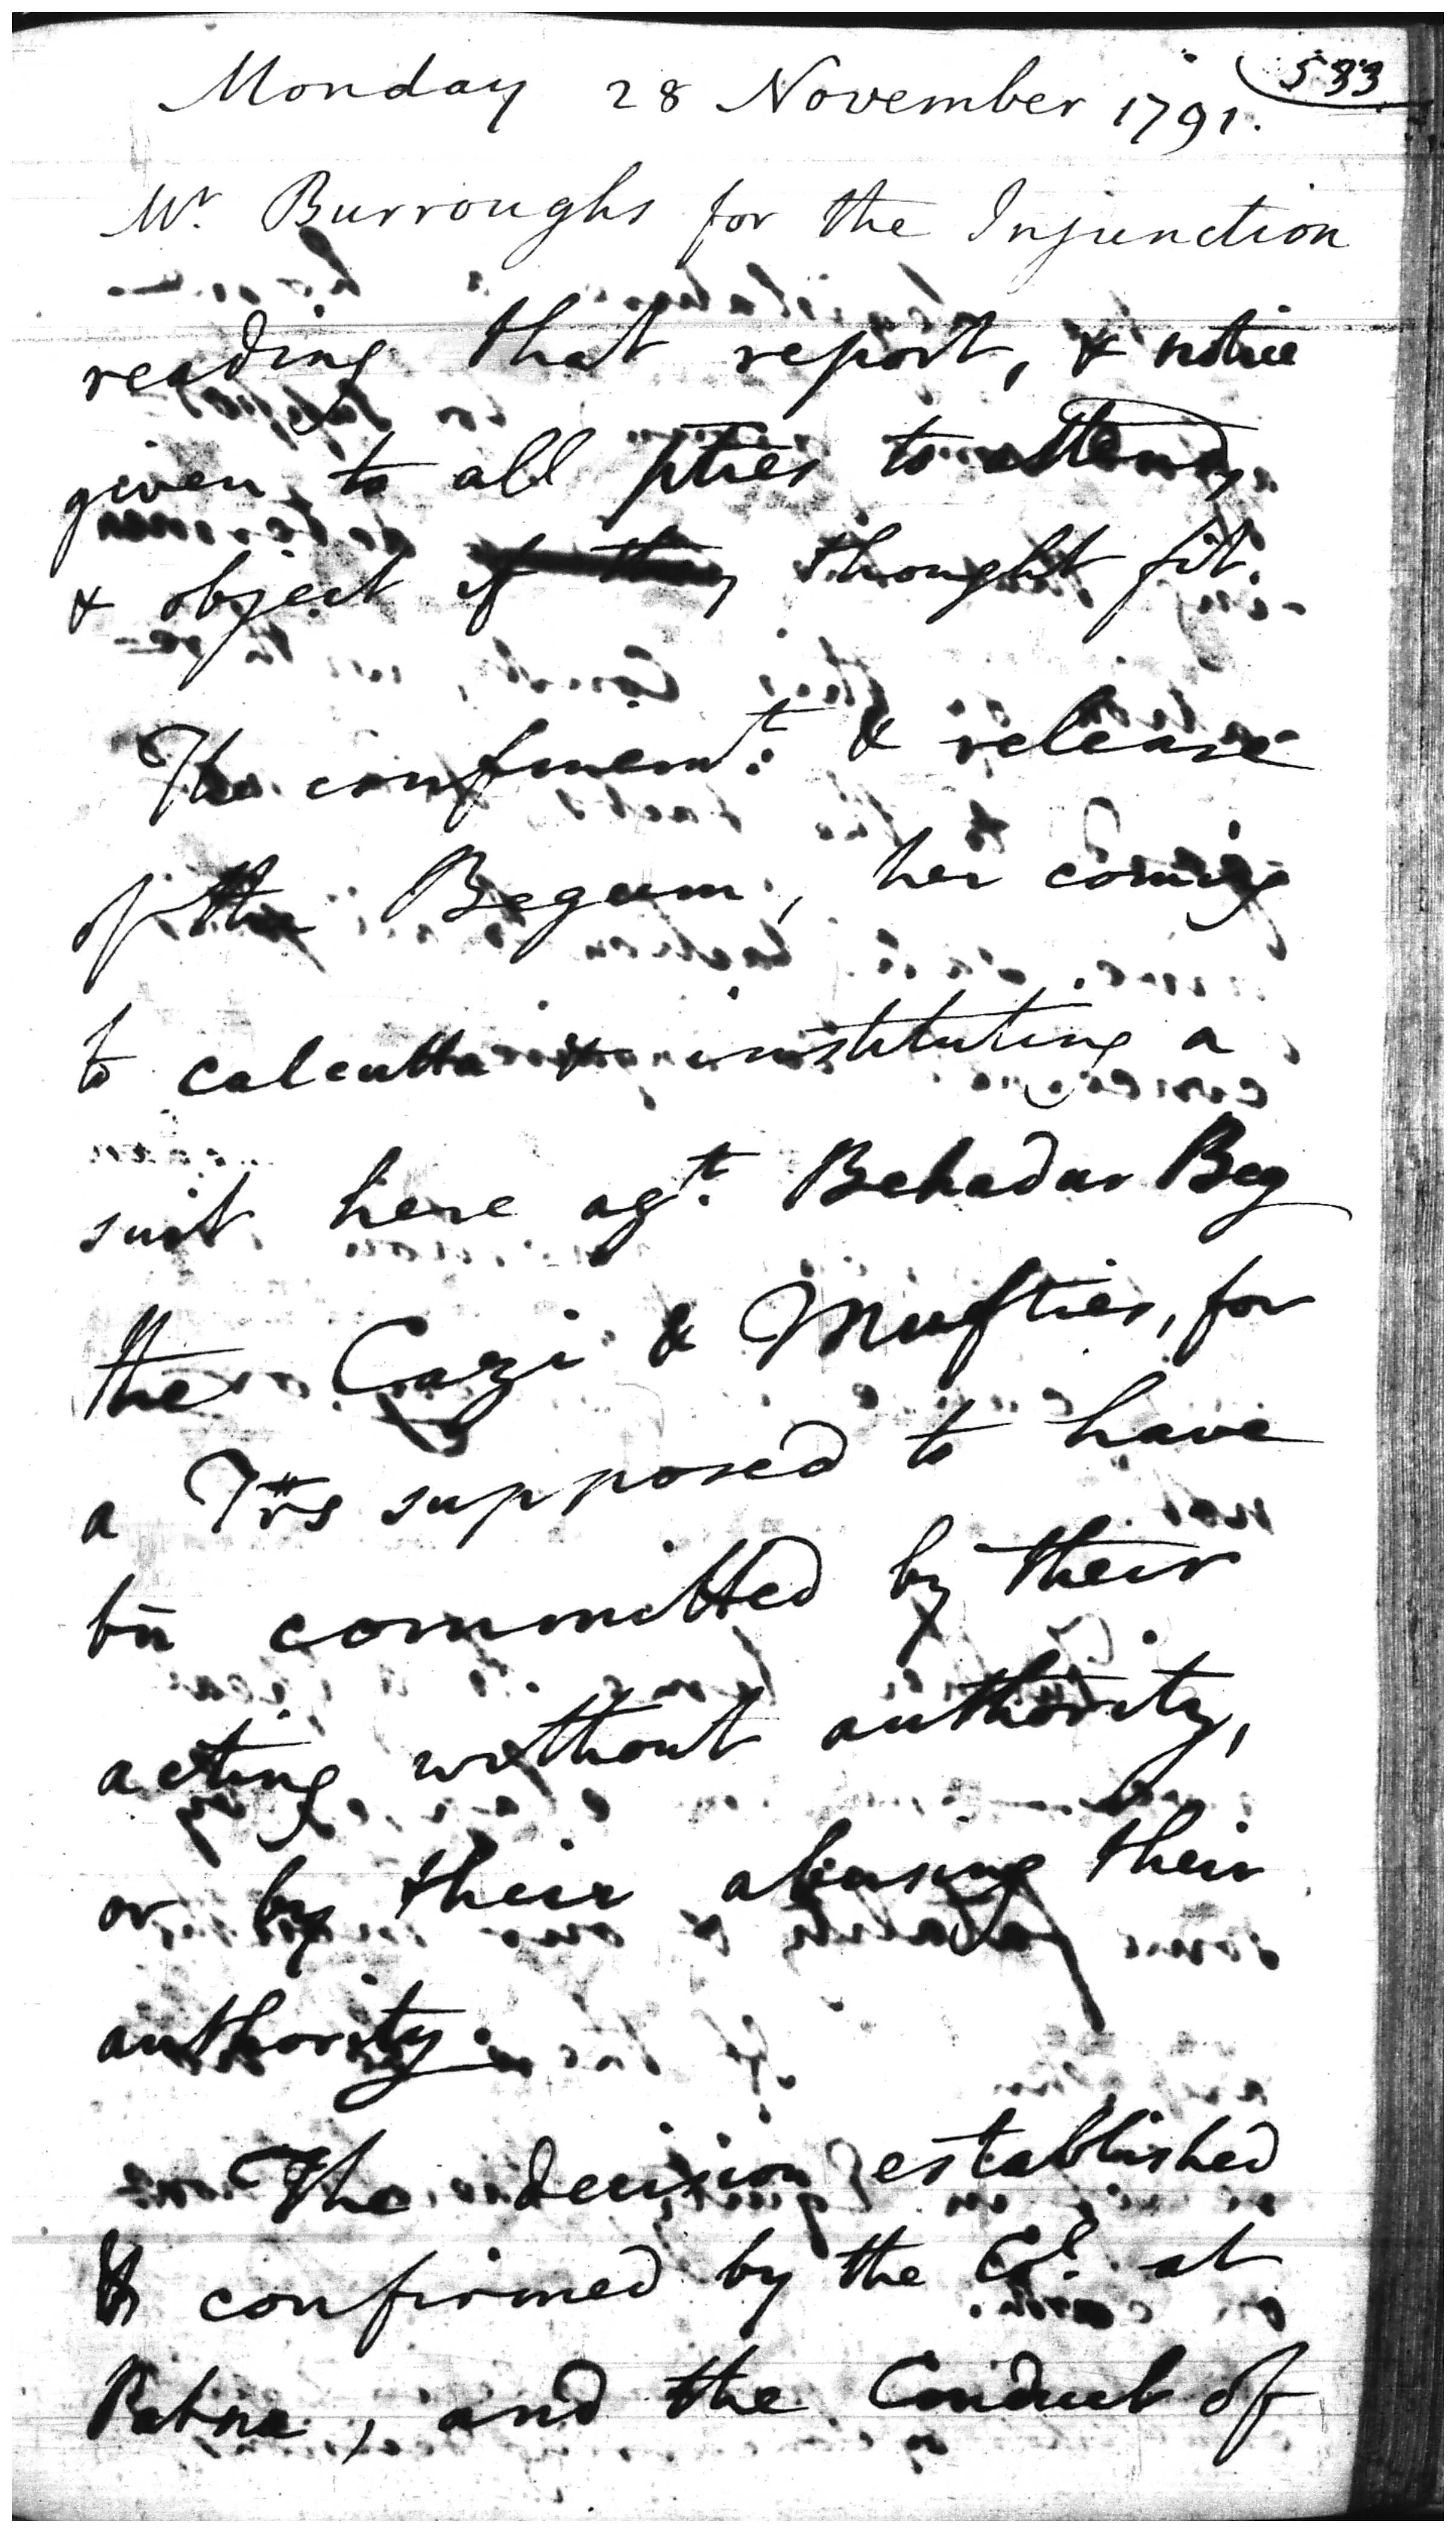 533
Monday 28 November 1791.
Mr. Burroughs for the Injunction
reading that report, & notice
given to all pties to attend,
& object if they thought fit.
The confinemt. & release
of the Begum, her coming
to Calcutta & instituting a
suit here agt. Behadar Beg
the Cazi & Mufties, for
a Trs supposed to have
bn committed by their
acting without authority,
or by their abusing their
authority.
The decision established
& confirmed by the Cl. at
Patna, and the Conduct of